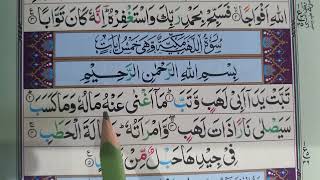 اللّٰهِ اَفْوَاجًا فَسَبِّحْ بِحَمْدِ رَبِّكَ وَاسْتَغْفِرْهُ اِنَّهٗ كَانَ تَوَّابًا
سُوْرَةُ اللَّهَبِ مَكِّيَّةٌ وَّهِيَ خَمْسُ اٰيَاتٍ
بِسْمِ اللّٰهِ الرَّحْمٰنِ الرَّحِيْمِ
تَبَّتْ يَدَاۤ اَبِيْ لَهَبٍ وَّتَبَّ مَاۤ اَغْنٰى عَنْهُ مَالُهٗ وَمَا كَسَبَ
سَيَصْلٰى نَارًا ذَاتَ لَهَبٍ وَّامْرَاَتُهٗ حَمَّالَةَ الْحَطَبِ
فِيْ جِيْدِهَا حَبْلٌ مِّنْ